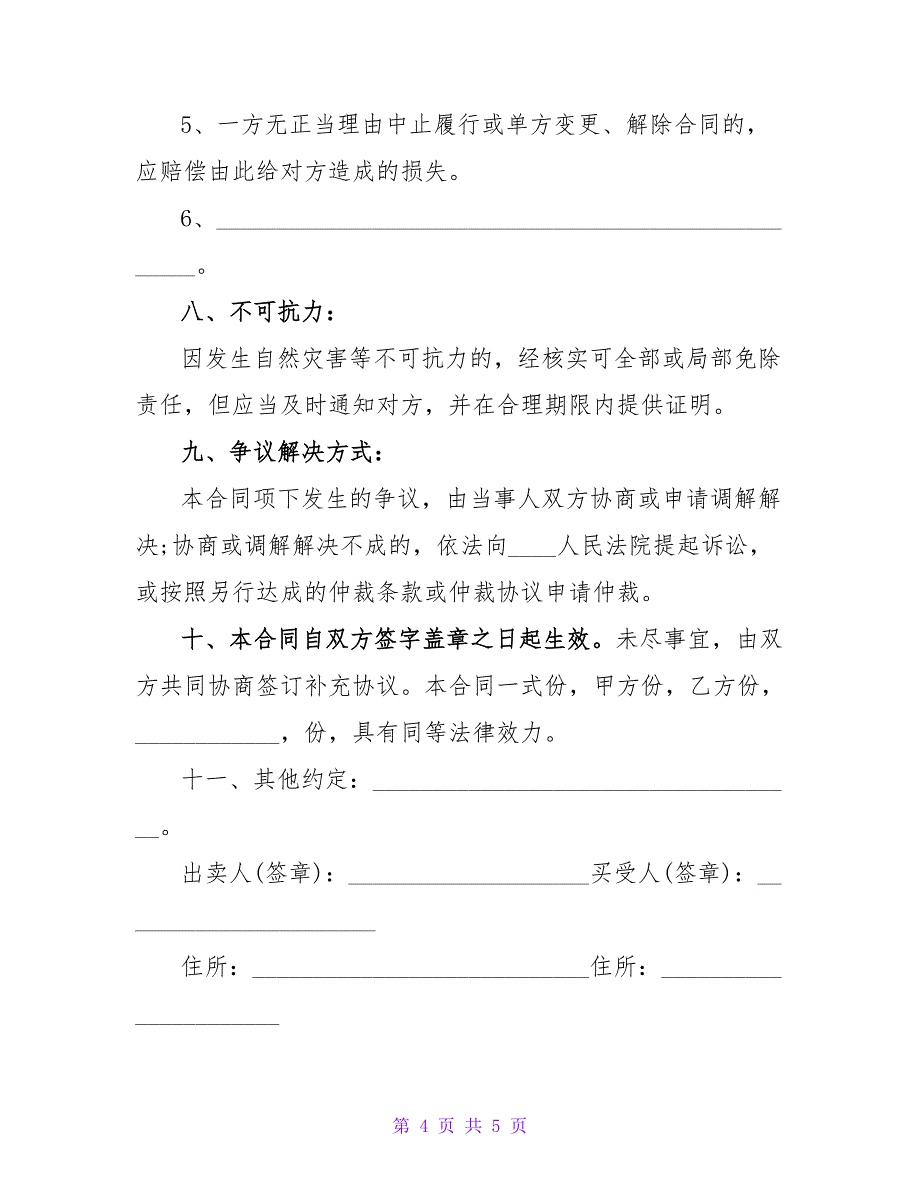 5、一方无正当理由中止履行或单方变更、解除合同的，
应赔偿由此给对方造成的损失。
6、_______________________________________________
_____。
八、不可抗力：
因发生自然灾害等不可抗力的，经核实可全部或局部免除
责任，但应当及时通知对方，并在合理期限内提供证明。
九、争议解决方式：
本合同项下发生的争议，由当事人双方协商或申请调解解
决;协商或调解解决不成的，依法向____人民法院提起诉讼，
或按照另行达成的仲裁条款或仲裁协议申请仲裁。
十、本合同自双方签字盖章之日起生效。未尽事宜，由双
方共同协商签订补充协议。本合同一式份，甲方份，乙方份，
____________，份，具有同等法律效力。
十一、其他约定：__________________________________
__。
出卖人(签章)：____________________买受人(签章)：__
____________________
住所：____________________________住所：__________
____________
第 4 页 共 5 页